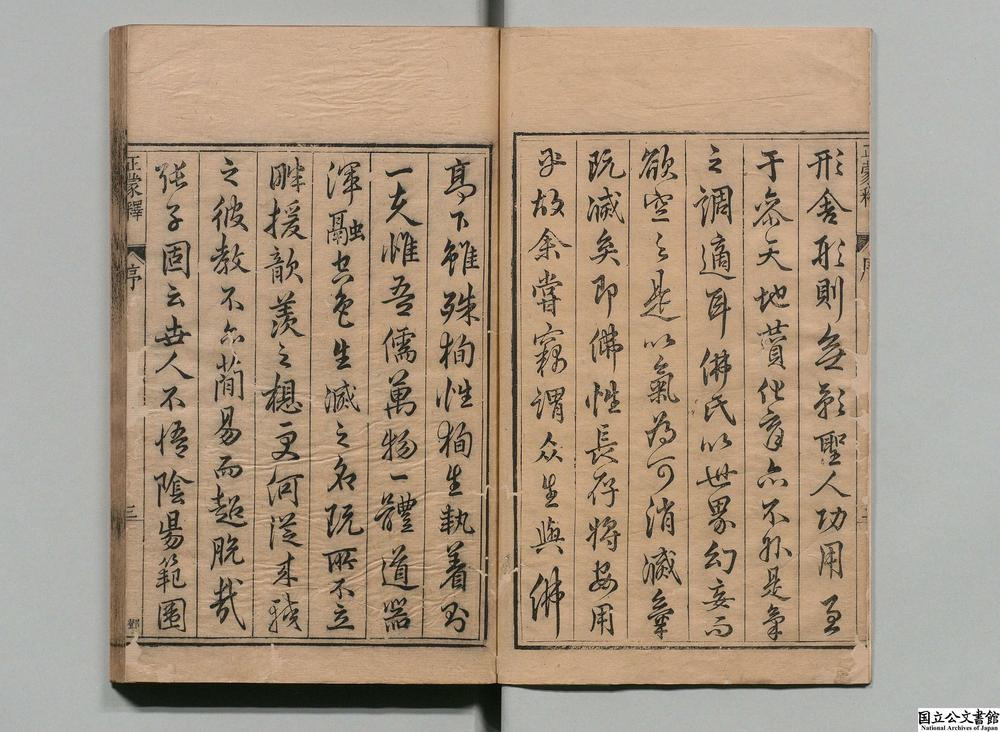 形舍形則無氣聖人功用至
于參天地贊化育亦不外是氣
之調適耳佛氏以世界幻妄而
欲空之是以氣為可消滅氣
既滅矣即佛性長存將安用
乎故余嘗竊謂眾生與佛
高下雖殊徇性徇生執着則
一夫惟吾儒萬物一體道器
渾融空色生滅之名既所不立
畔援歆羨之想更何從來較
之彼教不亦簡易而超脫哉
張子固云世人不悟陰陽範圍
正蒙釋
序
三
正蒙釋
序
三
鄧
国立公文書館
National Archives of Japan